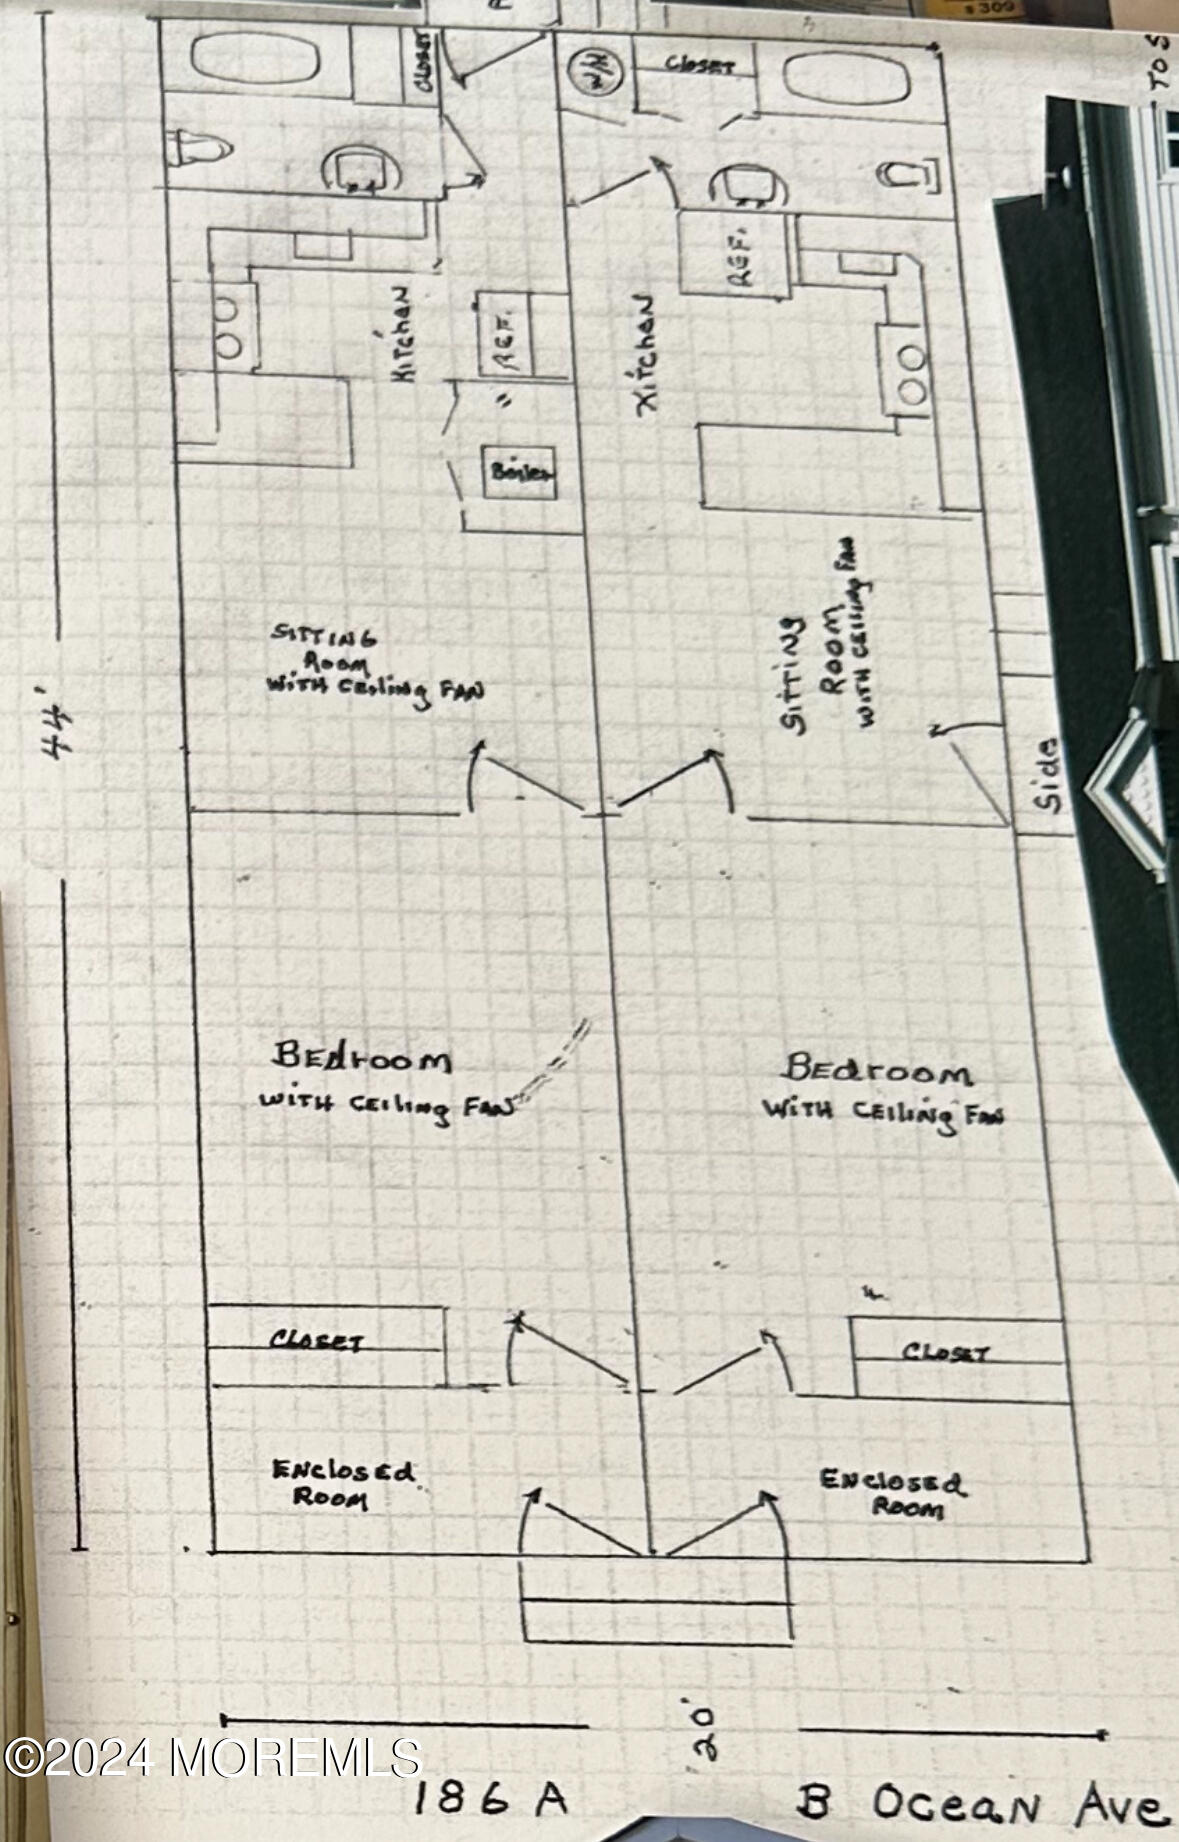 $309
TO S
CLOSET
W/H
CLOSET
REF.
Kitchen
REF.
Kitchen
Boiler
SITTING
Room
WITH CEiling FAN
SITTING
ROOM
WITH CEiling FAN
44'
Side
BEdroom
WITH CEiling FAN
BEdroom
WITH CEiling FAN
CLOSET
CLOSET
ENclosed
ROOM
ENclosed
ROOM
20'
©2024 MOREMLS
186 A B OceaN Ave